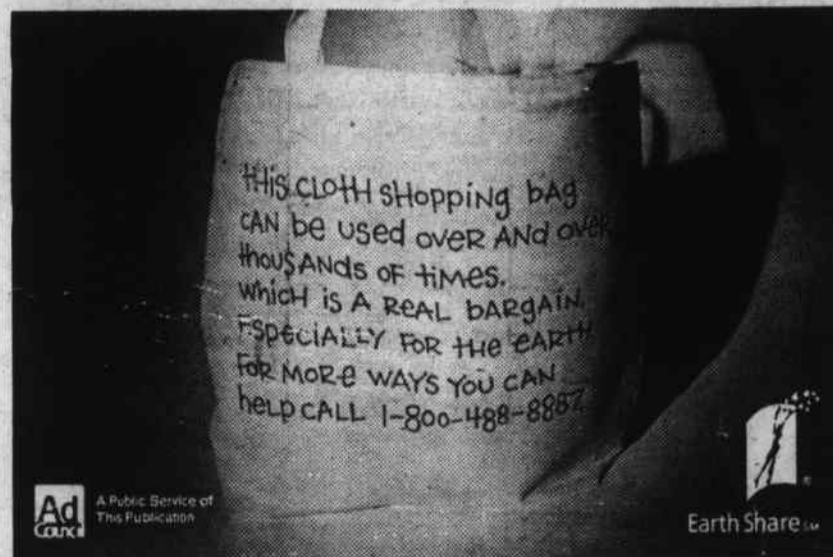 tHis CLOtH sHOppiNg bAg
CAN be used oveR ANd oveR
thou$ANds OF tiMes.
which is A ReAL bARgAiN.
EspeciALLY FOR tHe eARtH.
FOR MORe WAYS YOU CAN
heLp CALL 1-800-488-8887
Ad
Council
A Public Service of
This Publication
Earth Share SM